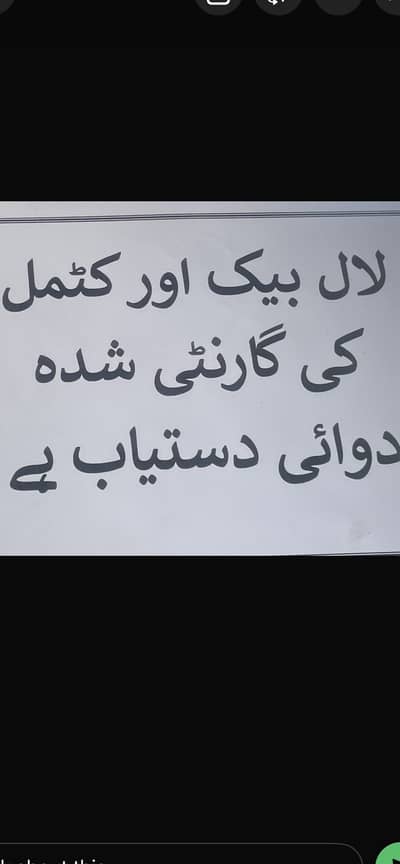 لال بیک اور کٹمل
کی گارنٹی شدہ
دوائی دستیاب ہے